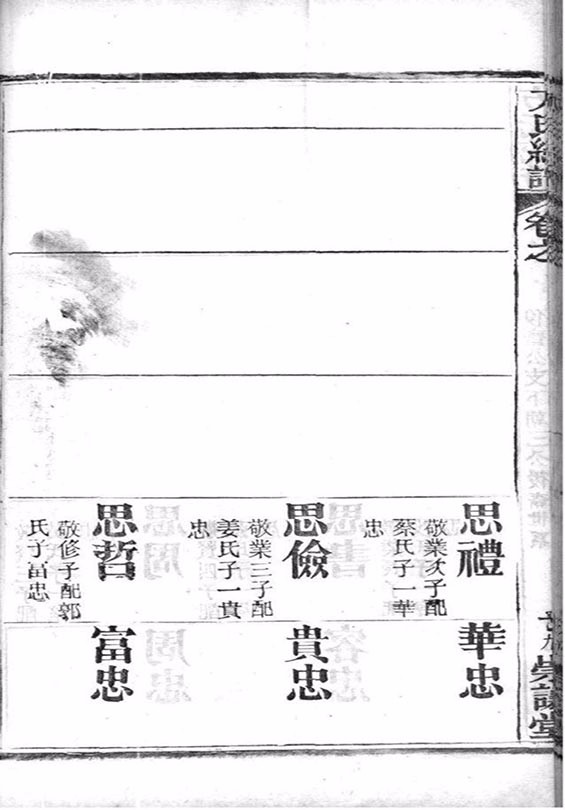 氏續譜
卷之
崇譜堂
思禮
敬業次子配
蔡氏子一華
忠
思儉
敬業三子配
姜氏子一貴
忠
思哲
敬修子配郭
氏子富忠
華忠
貴忠
富忠